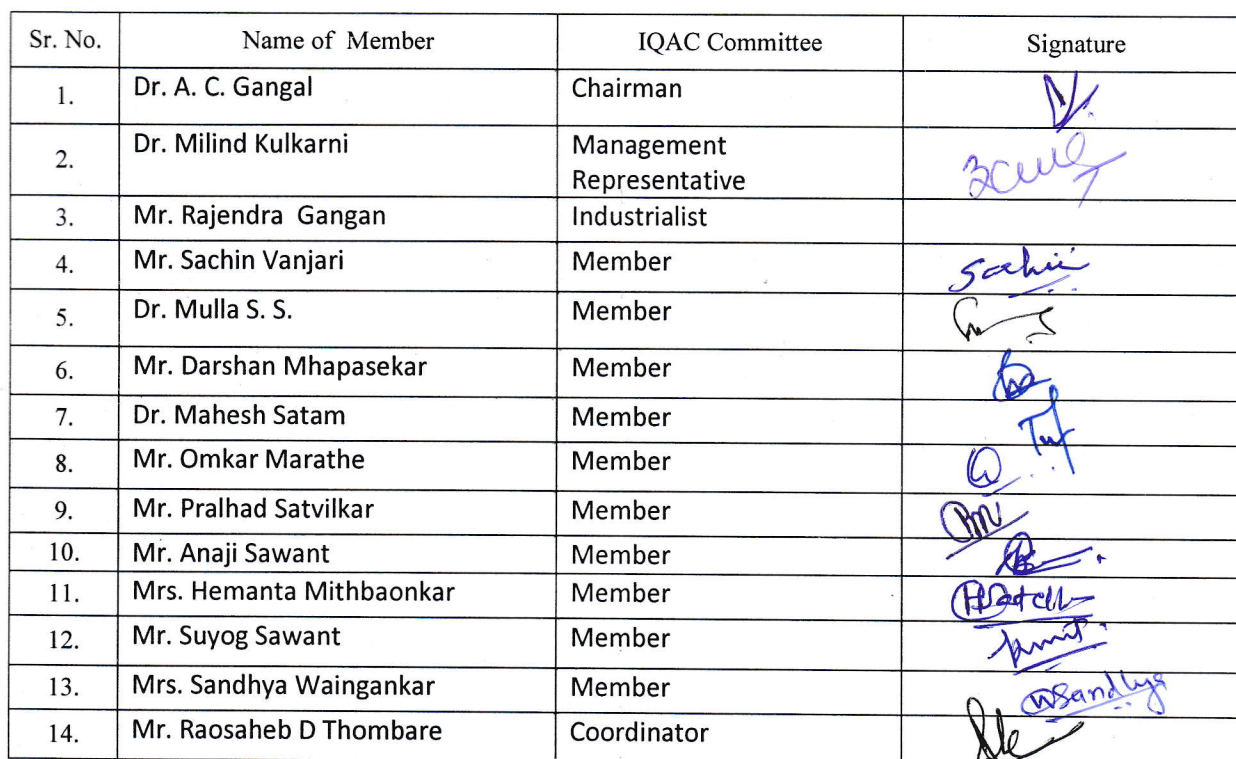 Sr. No. Name of Member IQAC Committee Signature
1. Dr. A. C. Gangal Chairman
2. Dr. Milind Kulkarni Management
Representative
3. Mr. Rajendra Gangan Industrialist
4. Mr. Sachin Vanjari Member Sachin
5. Dr. Mulla S. S. Member
6. Mr. Darshan Mhapasekar Member
7. Dr. Mahesh Satam Member
8. Mr. Omkar Marathe Member
9. Mr. Pralhad Satvilkar Member
10. Mr. Anaji Sawant Member
11. Mrs. Hemanta Mithbaonkar Member
12. Mr. Suyog Sawant Member
13. Mrs. Sandhya Waingankar Member WSandhya
14. Mr. Raosaheb D Thombare Coordinator